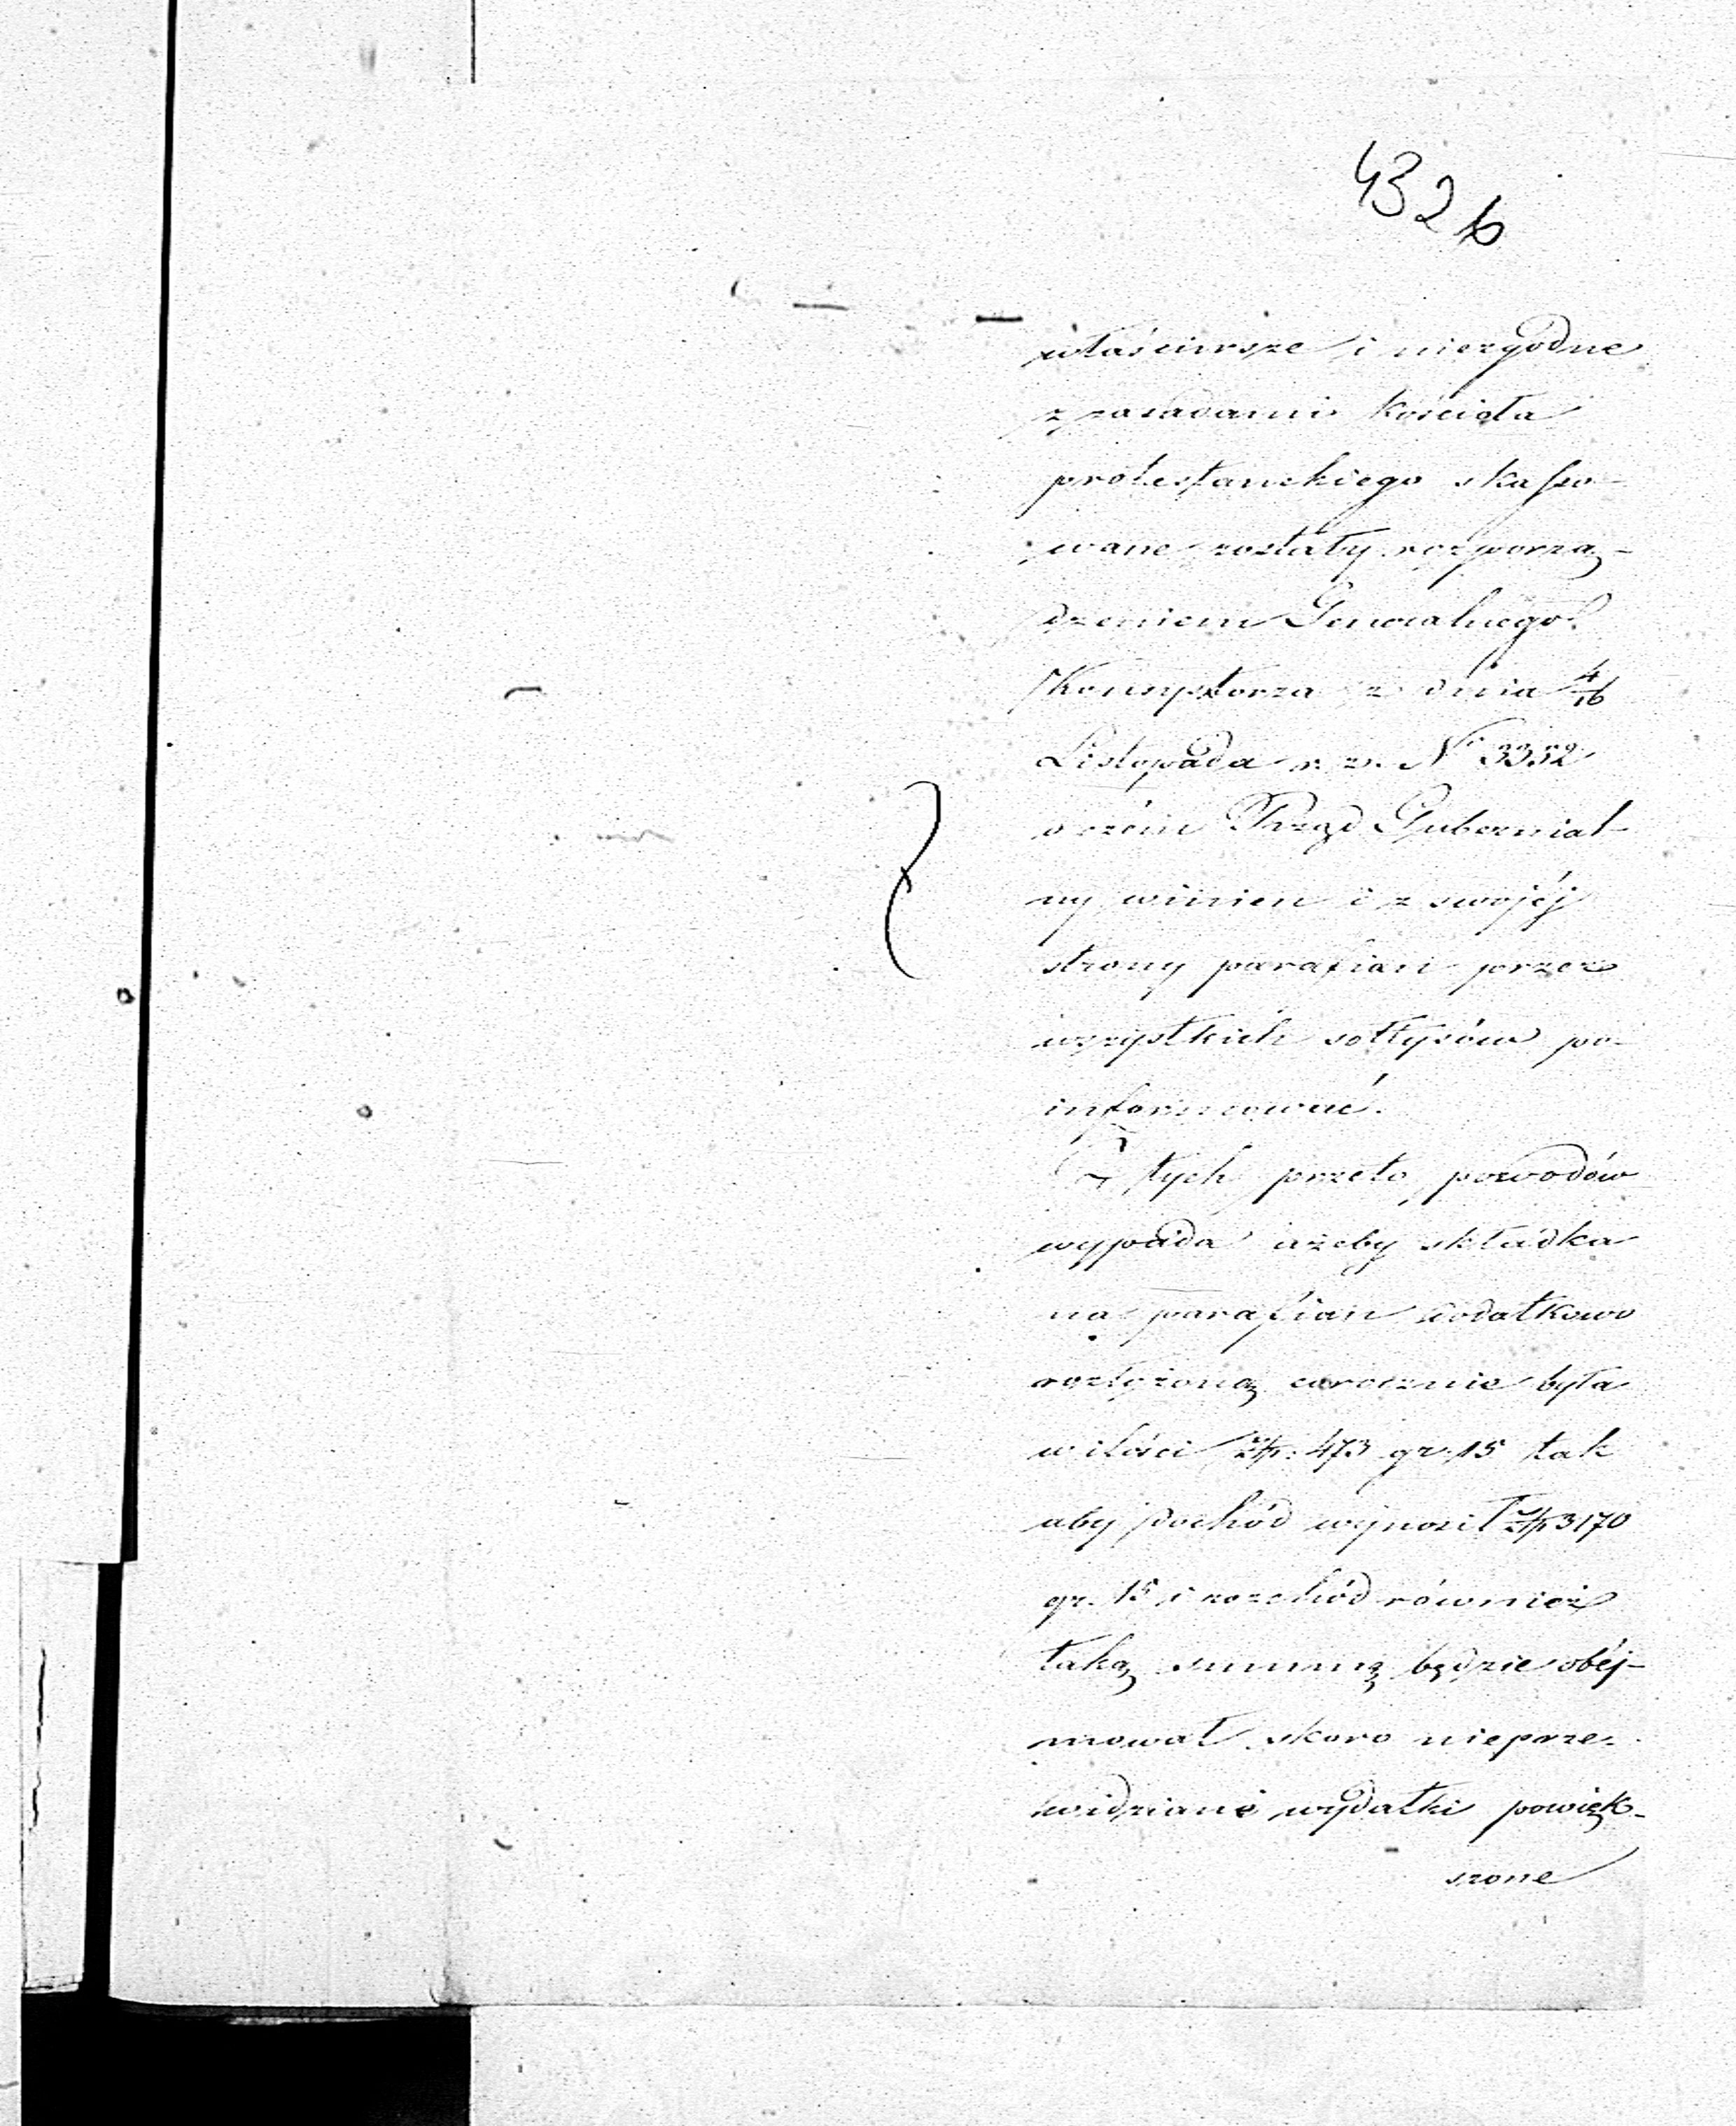 432 b
właściwsze i niezgodne
z zasadami Kościoła
protestanckiego skasso-
wane zostały rozporzą-
dzeniem Generalnego
Konsystorza z dnia 4/16
Listopada r. z. Nr 3352
o czém Rząd Gubernial-
ny winien i z swojéj
strony parafian przez
wszystkich sołtysów po-
informować.
Z tych przeto powodów
wypada ażeby składka
na parafian dodatkowo
rozłożoną corocznie była
w ilości Złp. 473 gr. 15 tak
aby dochód wynosił Złp 3170
gr. 15 i rozchód również
taką summę będzie obéj-
mował skoro nieprze-
widziane wydatki powięk-
szone